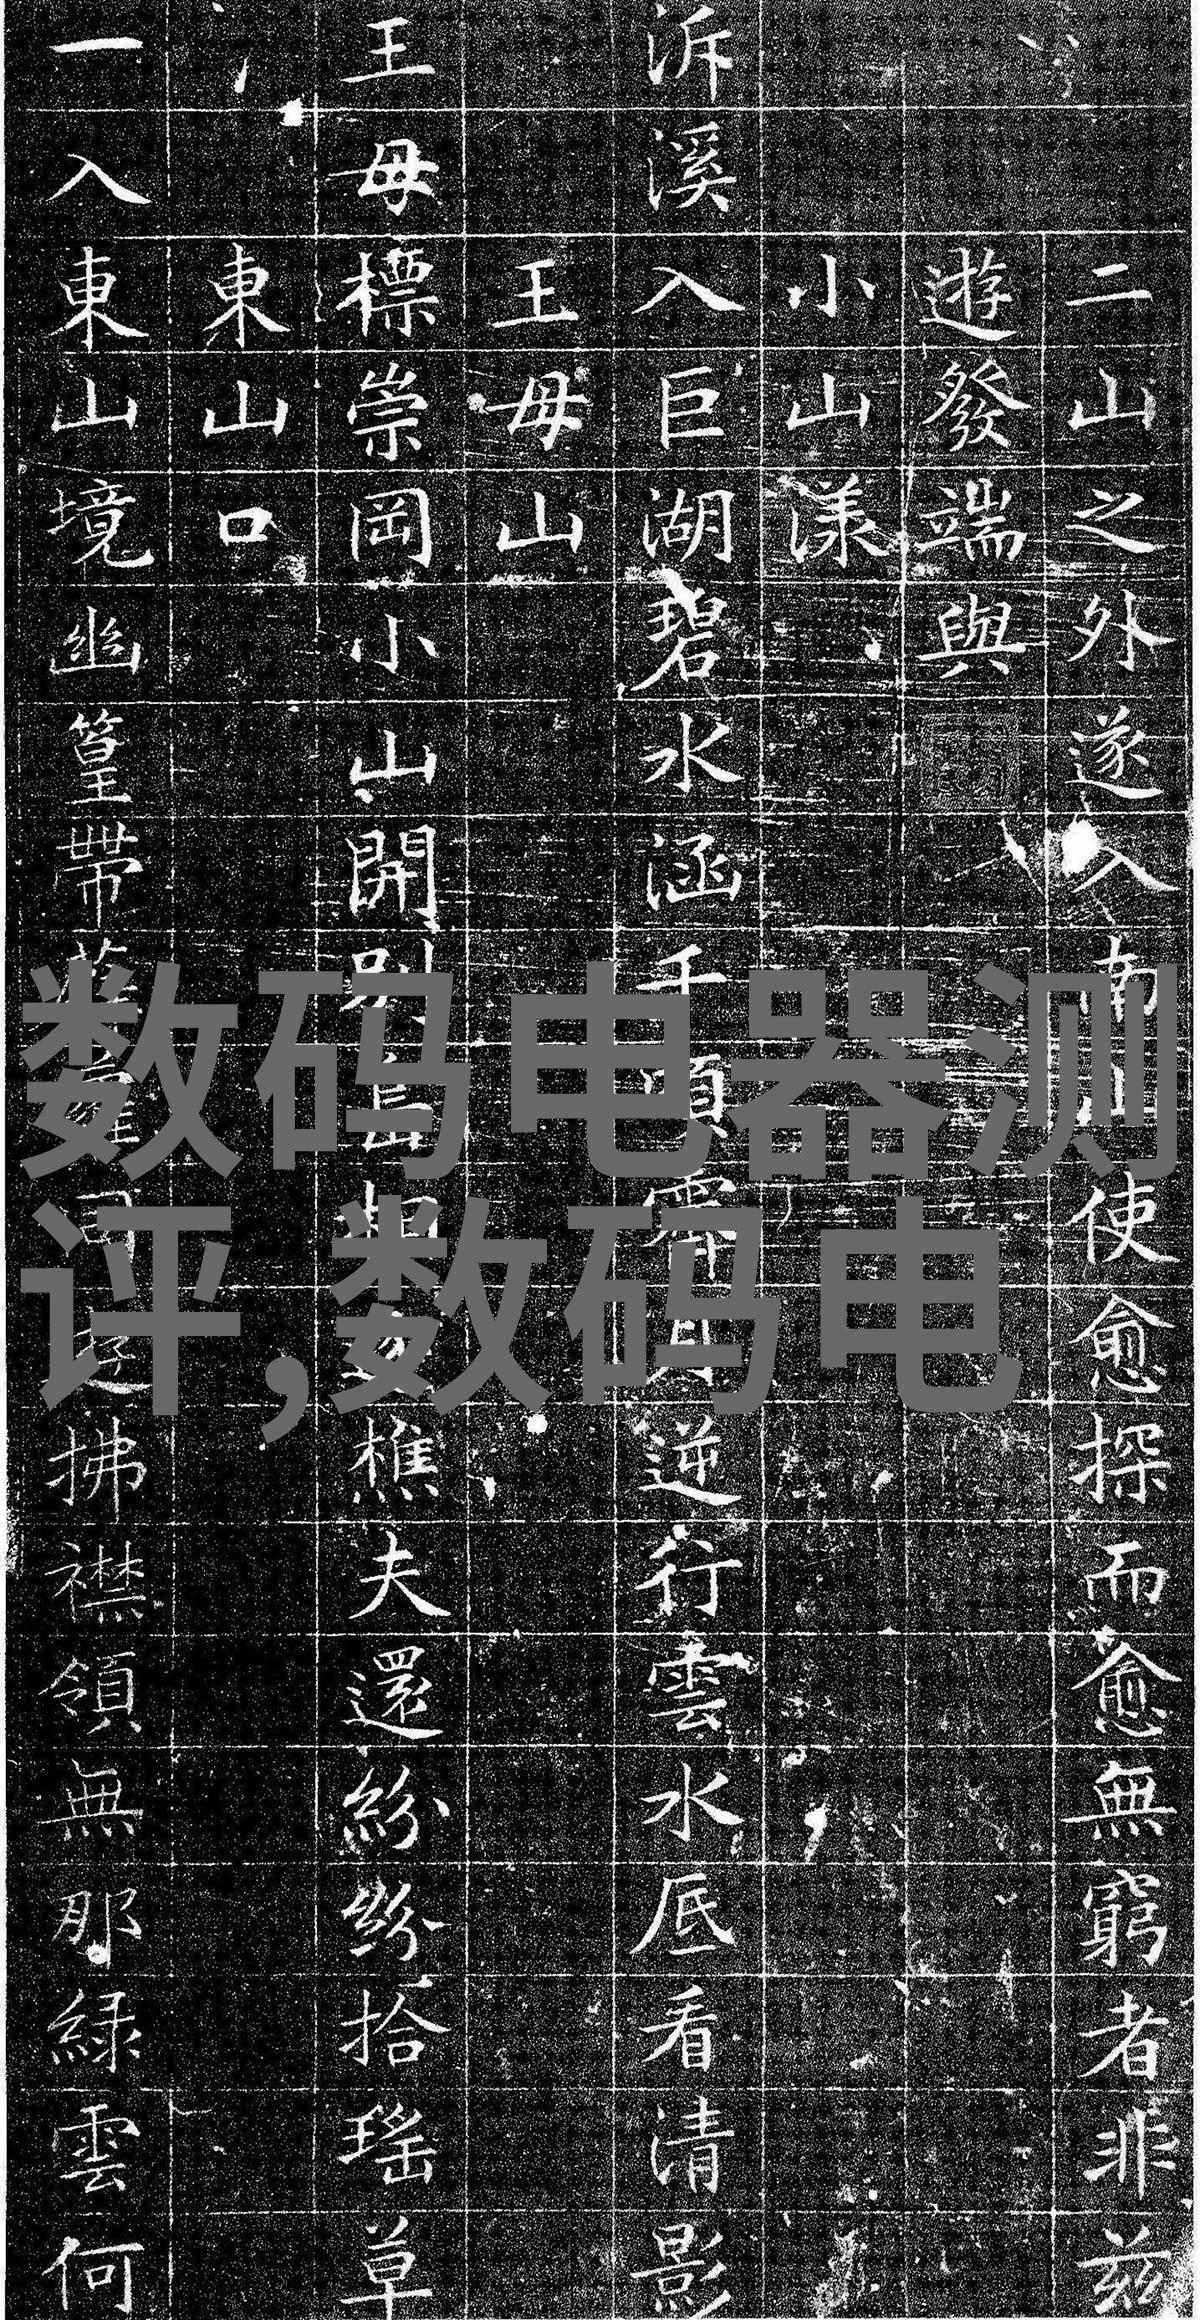 二山之外遂入南山使愈探而愈無窮者非茲
遊發端與
小山漾
泝溪入巨湖碧水涵千頃霽月逆行雲水底看清影
王母山
王母標崇岡小山開別相樵夫還紛紛拾瑤草
東山口
一入東山境幽篁帶拂襟領無那綠雲何
数码电器测
评,数码电